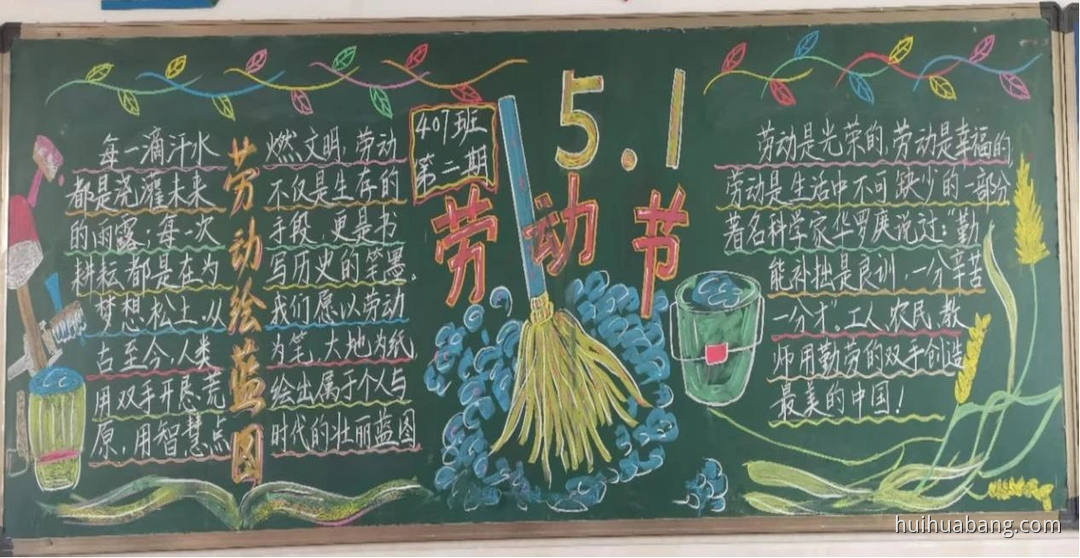 每一滴汗水
都是浇灌未来
的雨露；每一次
耕耘都是在为
梦想松土。从
古至今，人类
用双手开垦荒
原，用智慧点
劳动绘蓝图
燃文明，劳动
不仅是生存的
手段，更是书
写历史的笔墨。
我们愿以劳动
为笔，大地为纸，
绘出属于个人与
时代的壮丽蓝图
407班
第二期
5.1
劳动节
劳动是光荣的，劳动是幸福的
劳动是生活中不可缺少的一部分
著名科学家华罗庚说过：“勤
能补拙是良训，一分辛苦
一分才”。工人、农民、教
师用勤劳的双手创造
最美的中国！
huihuabang.com